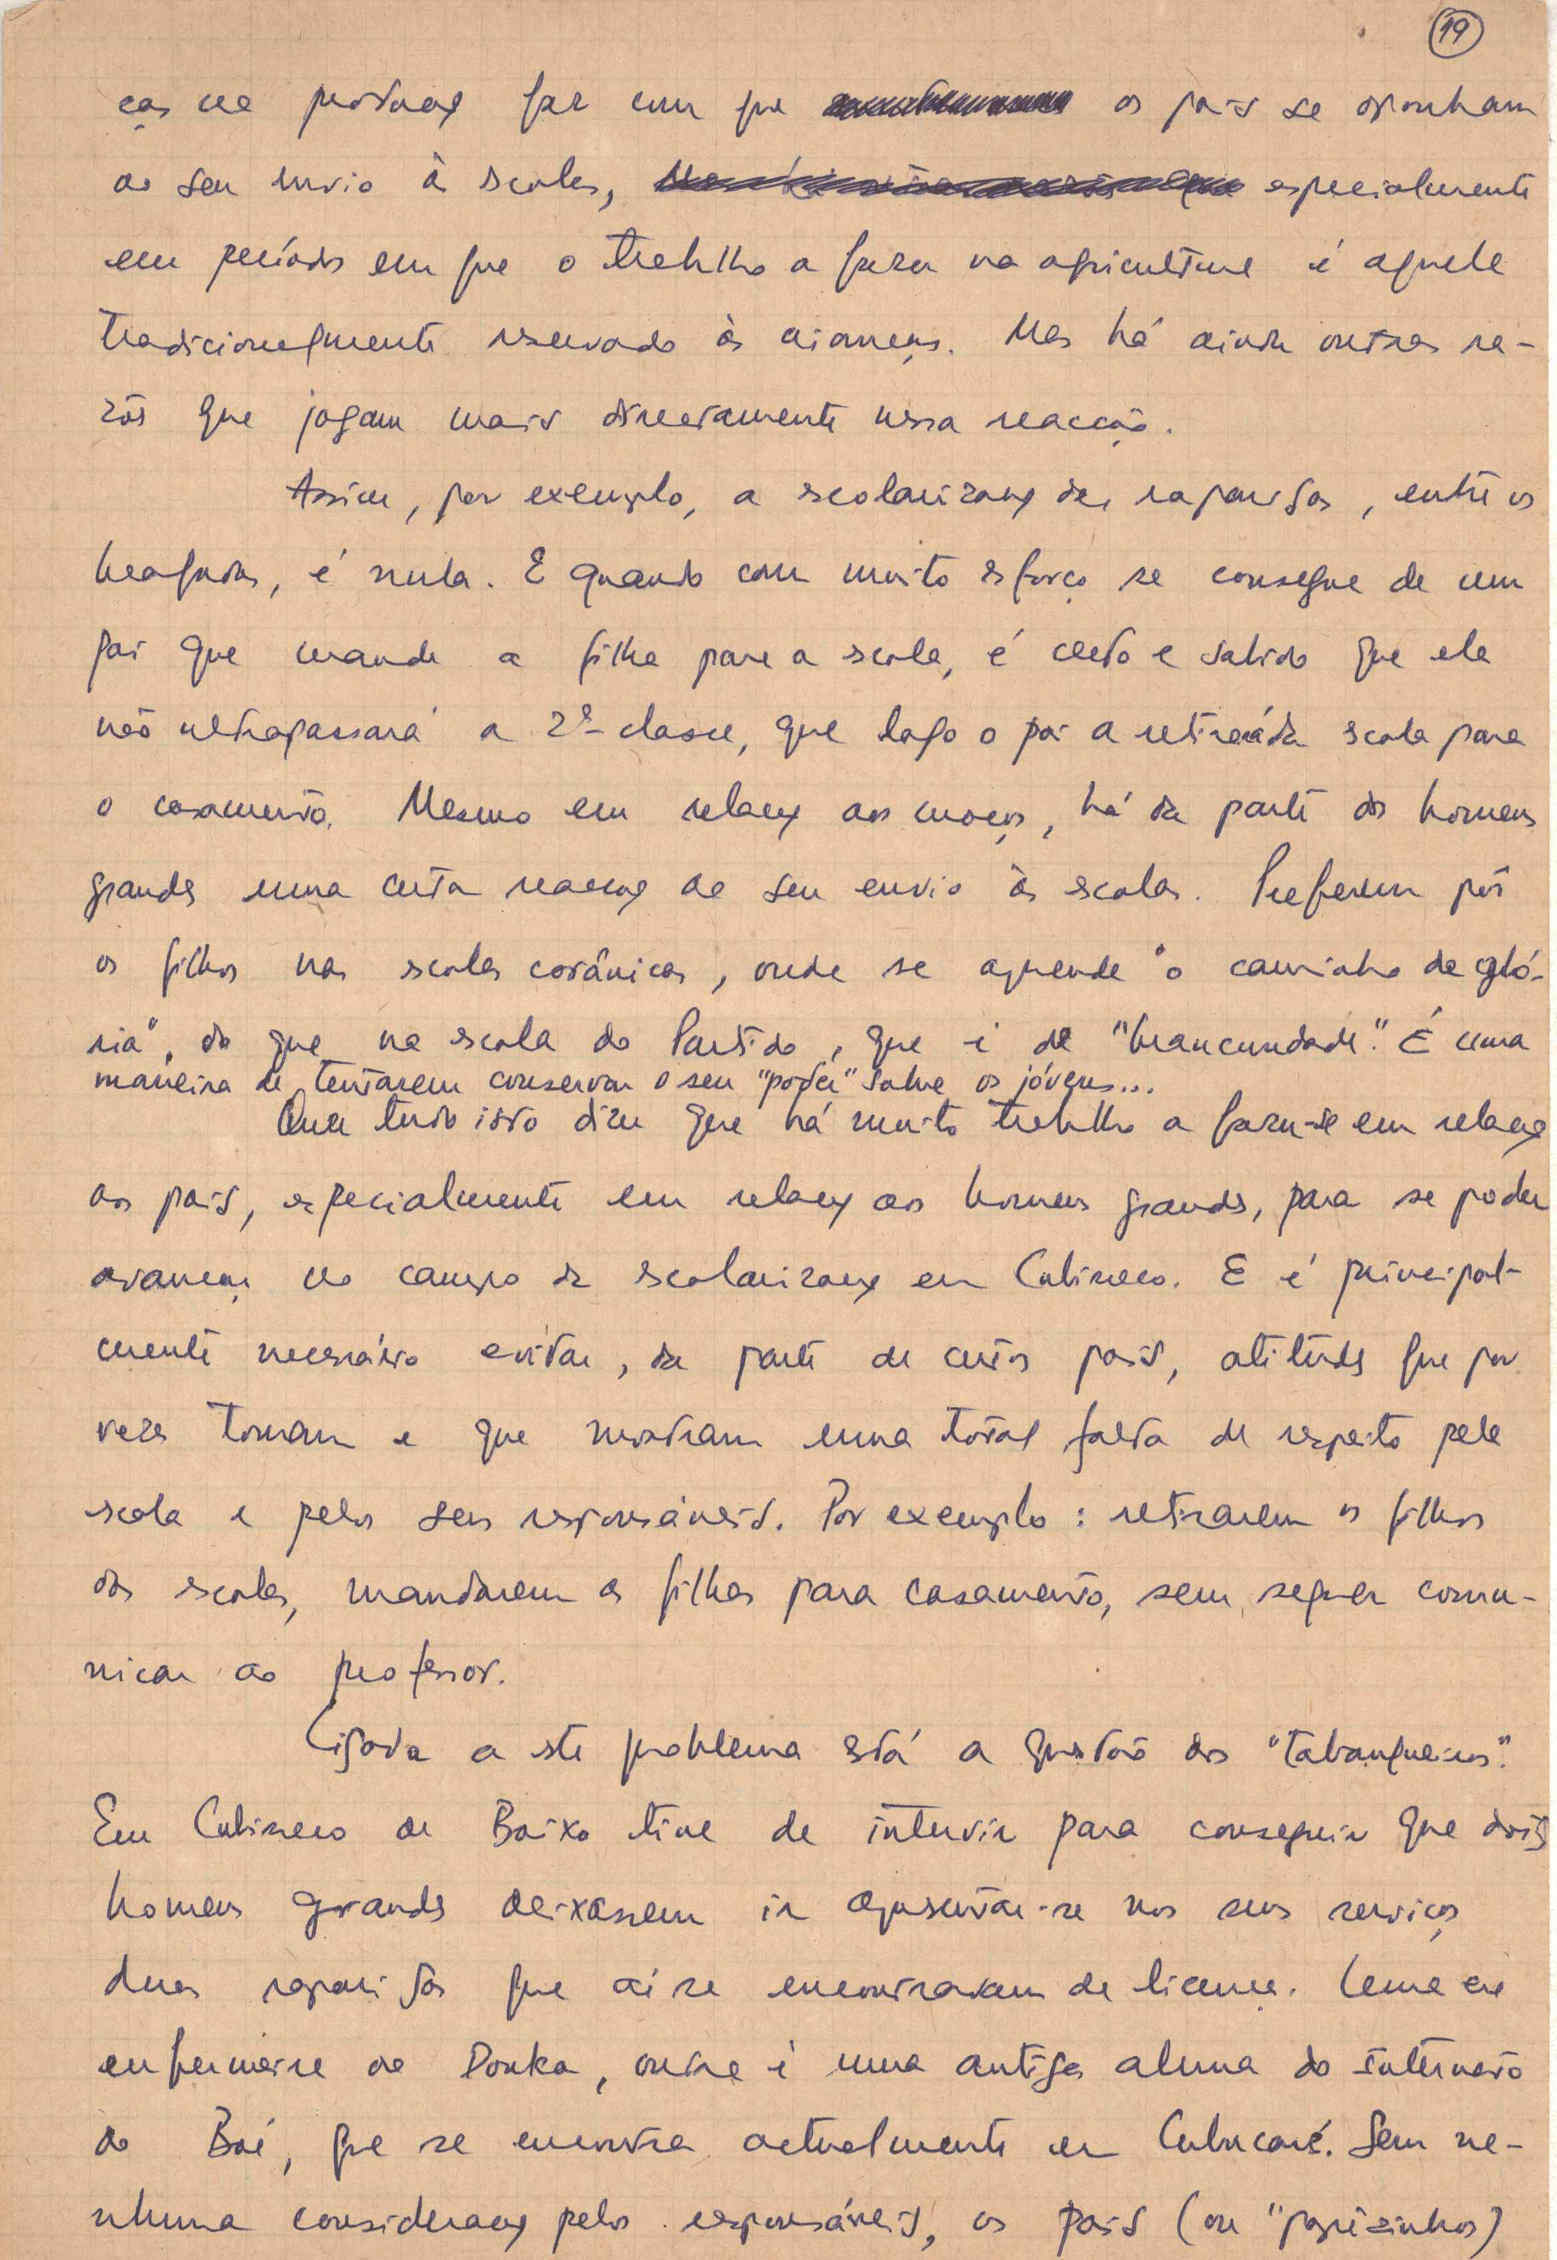 19
ças na produção faz com que os pais se oponham
ao seu envio à escola, especialmente
em períodos em que o trabalho a fazer na agricultura é aquele
tradicionalmente reservado às crianças. Mas há ainda outras ra-
zões que jogam mais directamente nessa reacção.
Assim, por exemplo, a escolarização das raparigas, entre os
beafadas, é nula. E quando com muito esforço se consegue de um
pai que mande a filha para a escola, é certo e sabido que ela
não ultrapassará a 2ª classe, que logo o pai a retirará da escola para
o casamento. Mesmo em relação aos moços, há da parte dos homens
grandes uma certa reacção ao seu envio às escolas. Preferem pôr
os filhos nas escolas corânicas, onde se aprende "o caminho da gló-
ria", do que na escola do Partido, que é de "brancundade". É uma
maneira de tentarem conservar o seu "poder" sobre os jóvens...
Quer tudo isto dizer que há muito trabalho a fazer-se em relação
aos pais, especialmente em relação aos homens grandes, para se poder
avançar no campo da escolarização em Cubisseco. E é principal-
mente necessário evitar, da parte de certos pais, atitudes que por
vezes tomam e que mostram uma total falta de respeito pela
escola e pelos seus responsáveis. Por exemplo: retirarem os filhos
das escolas, mandarem as filhas para casamento, sem sequer comu-
nicar ao professor.
Ligada a este problema está a questão dos "tabanqueiros".
Em Cubisseco de Baixo tive de intervir para conseguir que dois
homens grandes deixassem ir apresentar-se nos seus serviços
duas raparigas que aí se encontravam de licença. Uma era
enfermeira na Donka, outra é uma antiga aluna do internato
do Boé, que se encontra actualmente em Cubucaré. Sem ne-
nhuma consideração pelos responsáveis, os pais (ou "papèzinhos)